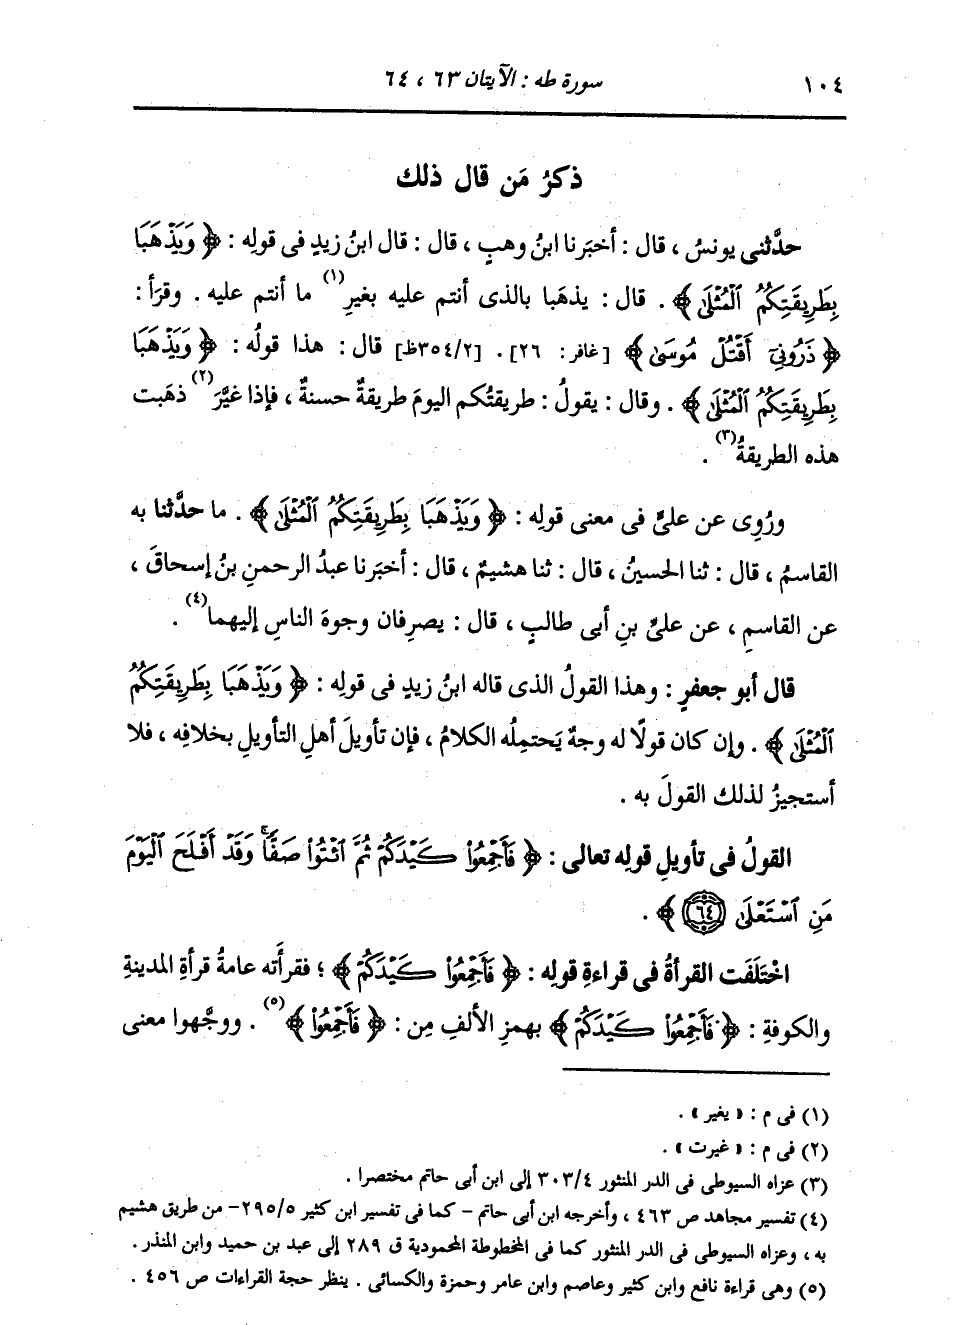 ١٠٤ سورة طه : الآيتان ٦٣ ، ٦٤
ذكرُ مَن قال ذلك
حدَّثنى يونسُ ، قال : أخبَرنا ابنُ وهبٍ ، قال : قال ابنُ زيدٍ فى قولِه : ﴿ وَيَذْهَبَا
بِطَرِيقَتِكُمُ ٱلْمُثْلَىٰ ﴾ . قال : يذهَبا بالذى أنتم عليه بغيرِ(١) ما أنتم عليه . وقرَأ :
﴿ ذَرُونِىٓ أَقْتُلْ مُوسَىٰ ﴾ [غافر : ٢٦] . [٣٥٤/٢ظ] قال : هذا قولُه : ﴿ وَيَذْهَبَا
بِطَرِيقَتِكُمُ ٱلْمُثْلَىٰ ﴾ . وقال : يقولُ : طريقتُكم اليومَ طريقةٌ حسنةٌ ، فإذا غيَّرَ(٢) ذهَبت
هذه الطريقةُ(٣) .
ورُوِى عن علىٍّ فى معنى قولِه : ﴿ وَيَذْهَبَا بِطَرِيقَتِكُمُ ٱلْمُثْلَىٰ ﴾ . ما حدَّثنا به
القاسمُ ، قال : ثنا الحسينُ ، قال : ثنا هشيمٌ ، قال : أخبَرنا عبدُ الرحمنِ بنُ إسحاقَ ،
عن القاسمِ ، عن علىِّ بنِ أبى طالبٍ ، قال : يصرِفان وجوهَ الناسِ إليهما(٤) .
قال أبو جعفرٍ : وهذا القولُ الذى قاله ابنُ زيدٍ فى قولِه : ﴿ وَيَذْهَبَا بِطَرِيقَتِكُمُ
ٱلْمُثْلَىٰ ﴾ . وإن كان قولًا له وجهٌ يَحتمِلُه الكلامُ ، فإن تأويلَ أهلِ التأويلِ بخلافِه ، فلا
أستجيزُ لذلك القولَ به .
القولُ فى تأويلِ قولِه تعالى : ﴿ فَأَجْمِعُوا۟ كَيْدَكُمْ ثُمَّ ٱئْتُوا۟ صَفًّا ۚ وَقَدْ أَفْلَحَ ٱلْيَوْمَ
مَنِ ٱسْتَعْلَىٰ (٦٤) ﴾ .
اخْتَلَفَت القرأةُ فى قراءةِ قولِه : ﴿ فَأَجْمِعُوا۟ كَيْدَكُمْ ﴾ ؛ فقرأَته عامةُ قرأةِ المدينةِ
والكوفةِ : ﴿ فَأَجْمِعُوا۟ كَيْدَكُمْ ﴾ بهمزِ الألفِ مِن : ﴿ فَأَجْمِعُوا۟ ﴾(٥) . ووجَّهوا معنى
(١) فى م : « يغير » .
(٢) فى م : « غيرت » .
(٣) عزاه السيوطى فى الدر المنثور ٣٠٣/٤ إلى ابن أبى حاتم مختصرا .
(٤) تفسير مجاهد ص ٤٦٣ ، وأخرجه ابن أبى حاتم - كما فى تفسير ابن كثير ٢٩٥/٥- من طريق هشيم
به ، وعزاه السيوطى فى الدر المنثور كما فى المخطوطة المحمودية ق ٢٨٩ إلى عبد بن حميد وابن المنذر .
(٥) وهى قراءة نافع وابن كثير وعاصم وابن عامر وحمزة والكسائى . ينظر حجة القراءات ص ٤٥٦ .